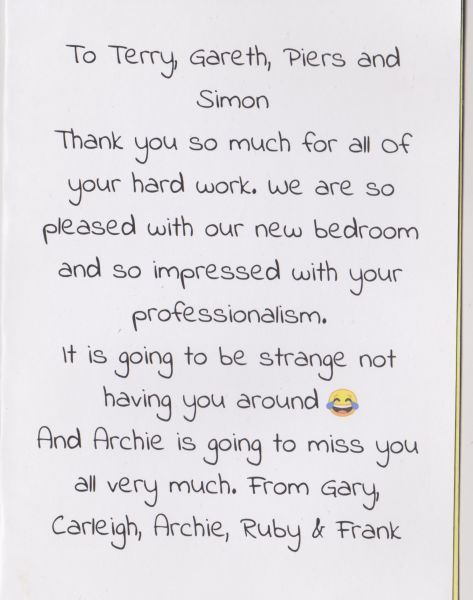 To Terry, Gareth, Piers and
Simon
Thank you so much for all of
your hard work. We are so
pleased with our new bedroom
and so impressed with your
professionalism.
It is going to be strange not
having you around 😂
And Archie is going to miss you
all very much. From Gary,
Carleigh, Archie, Ruby & Frank